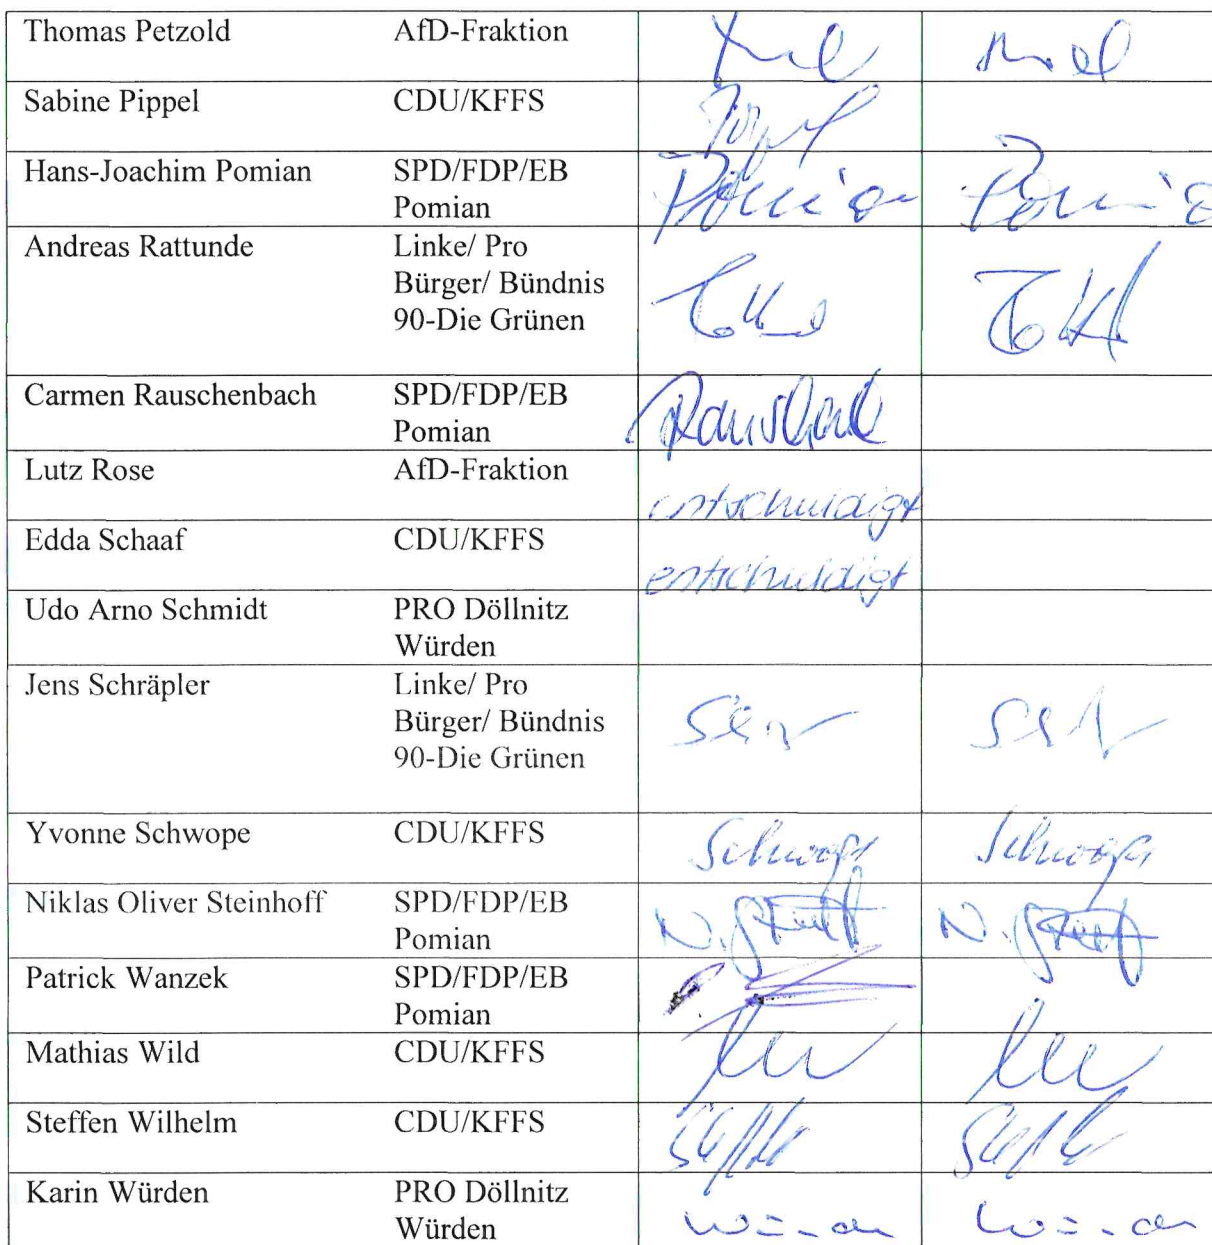 Thomas Petzold AfD-Fraktion
Sabine Pippel CDU/KFFS
Hans-Joachim Pomian SPD/FDP/EB
Pomian
Pomian Pomian
Andreas Rattunde Linke/ Pro
Bürger/ Bündnis
90-Die Grünen
Carmen Rauschenbach SPD/FDP/EB
Pomian
Lutz Rose AfD-Fraktion
entschuldigt
Edda Schaaf CDU/KFFS
entschuldigt
Udo Arno Schmidt PRO Döllnitz
Würden
Jens Schräpler Linke/ Pro
Bürger/ Bündnis
90-Die Grünen
Yvonne Schwope CDU/KFFS Schwope Schwope
Niklas Oliver Steinhoff SPD/FDP/EB
Pomian
Patrick Wanzek SPD/FDP/EB
Pomian
Mathias Wild CDU/KFFS
Steffen Wilhelm CDU/KFFS
Karin Würden PRO Döllnitz
Würden